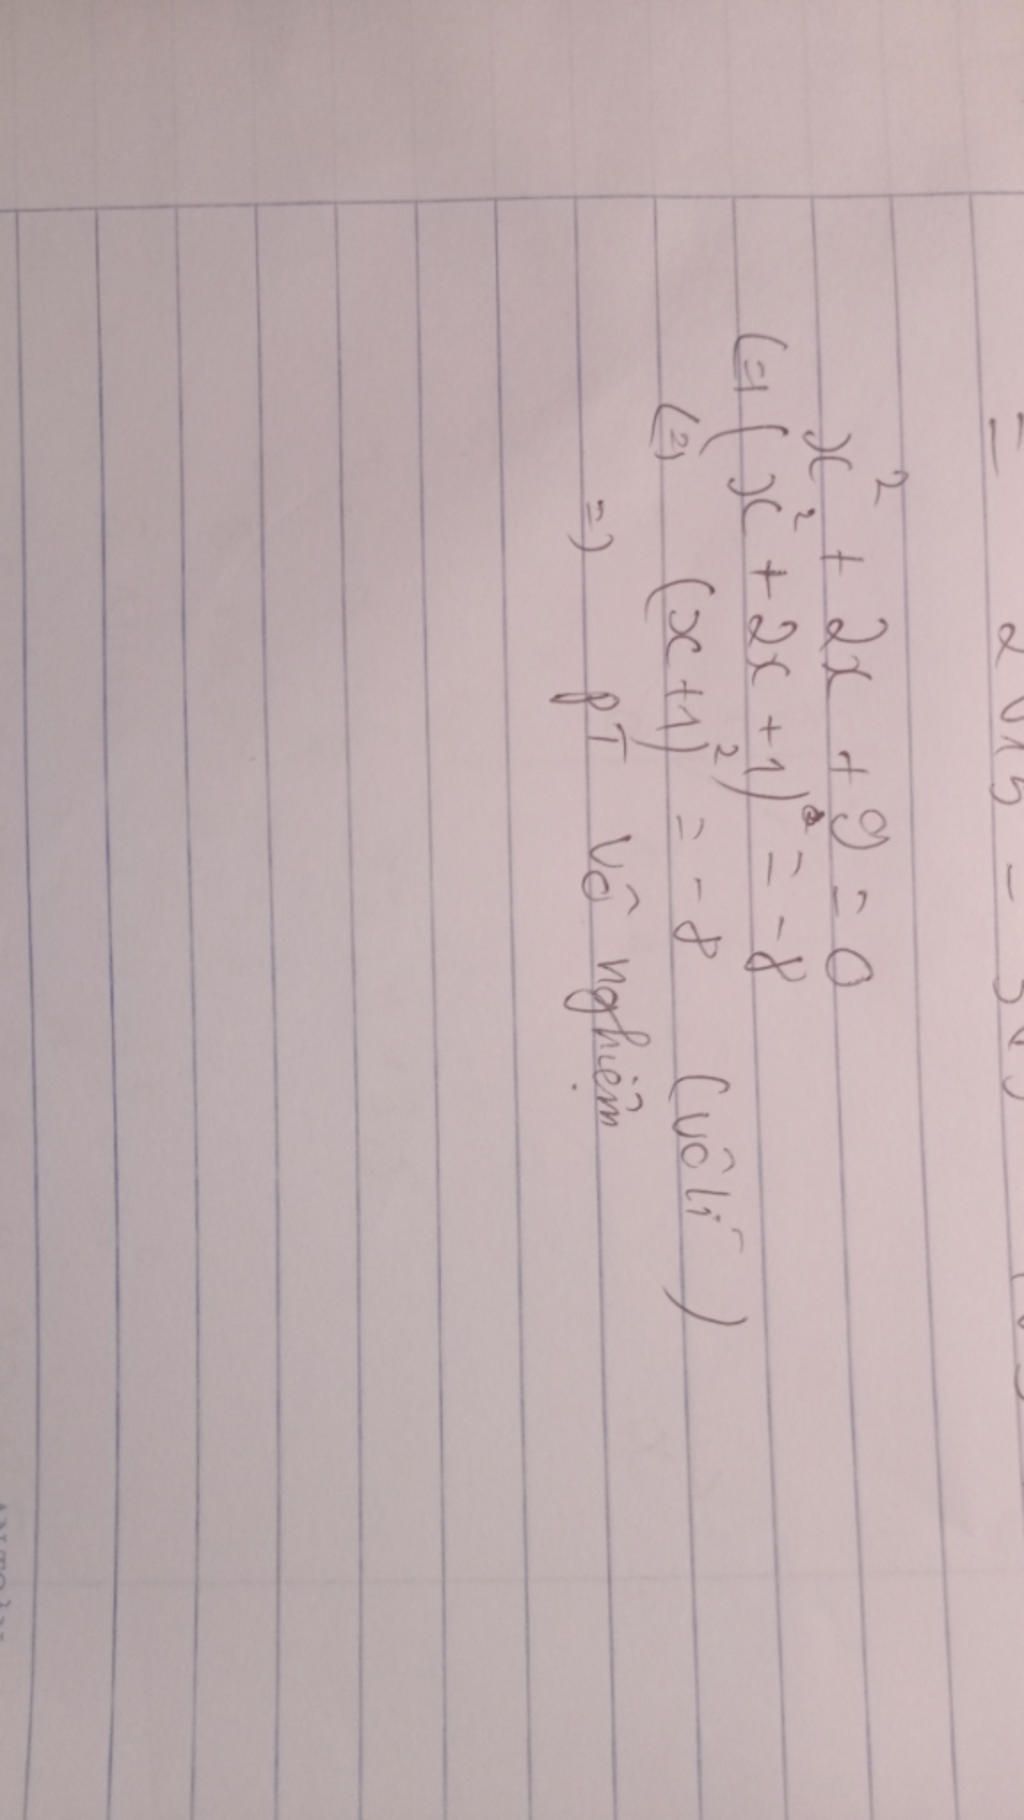 x² + 2x + 9 = 0
(=) (x² + 2x + 1) = -8
(=) (x+1)² = -8 (vô lí)
=) PT vô nghiệm